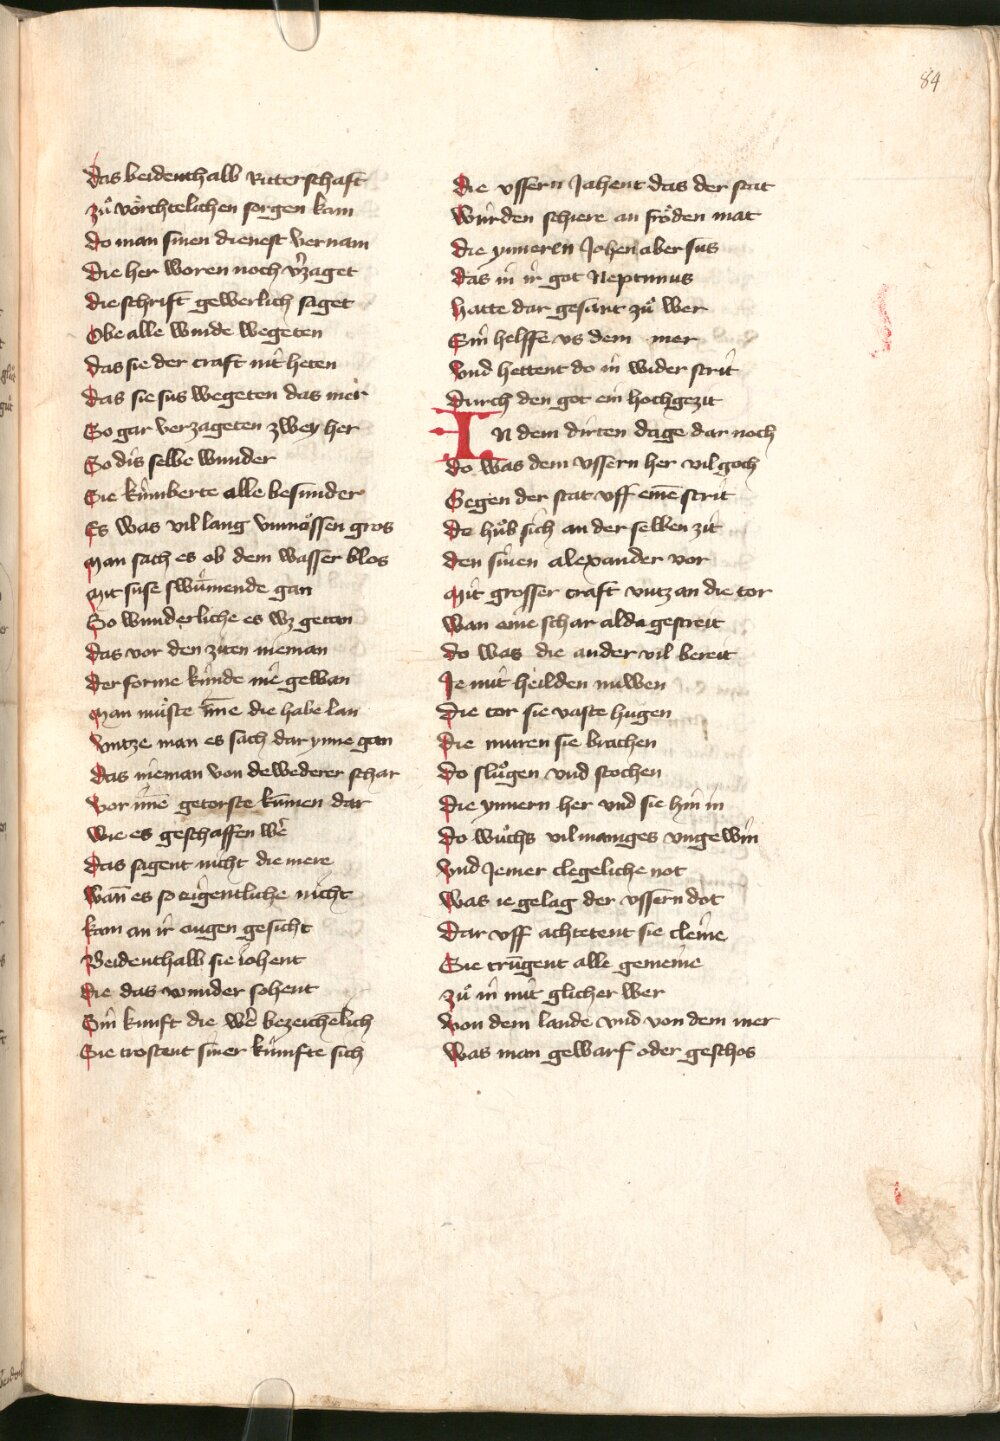 84
Das beidenthalb Ritterschaft
zuͦ voͤrchtelichen sorgen kam
Do man sinen dienest vernam
Die her woren noch v̉zaget
die schrift gewerlich saget
Obe alle winde wegeten
das sie der craft nit heten
Das sie sus wegeten das mer
So gar verzageten zwey her
So dis selbe wunder
Sie kúmberte alle besunder
Es was vil lang vnmoͤssen gros
Man sach es ob dem wasser blos
Mit suse swúmende gan
So wunderliche es wz getan
Das vor den ziten nieman
Der forme kúnde nie gewan
Man muͤste ime die habe lan
Vntze man es sach dar ynne gan
Das nieman von dewederer schar
Vor ime getorste kūmen dar
Wie es geschaffen wẻ
Das sagent nicht die mere
Wañ es so eigentliche nicht
kam an ir augen gesicht
Beidenthalb sie iohent
die das wunder sohent
Sin kunft die wẻ bezeichēlich
Sie trostent siner kúnfte sich
Die vssern Jahent das der stat
Wurden schiere an froͤden mat
Die ynnern Johen aber sus
Das in ir got Neptunus
Hatte dar gesant zuͦ wer
Ein helffe vs dem mer
Vnd hettent do in wider strit
Durch den got ein hochgezit
IN dem dirten dage dar noch
Do was dem vssern her vil goch
Gegen der stat vff eine strit
Do huͦb sich an der selben zit
den sinen alexander vor
Mit grosser craft vntz an die tor
Wan eine schar alda gestreit
Do was die ander vil bereit
Je mit heilden nuwen
Die tor sie vaste hugen
Die muren sie brachen
Do sluͦgen vnd stochen
Die ynnern her vnd sie hin in
Do wuͦchs vil maniges vngewin
Vnd Jemer clegeliche not
Was ie gelag der vssern dot
Dar vff achtetent sie cleine
Sie trūgent alle gemeine
zuͦ in mit glicher wer
Von dem lande vnd von dem mer
Was man gewarf oder geschos